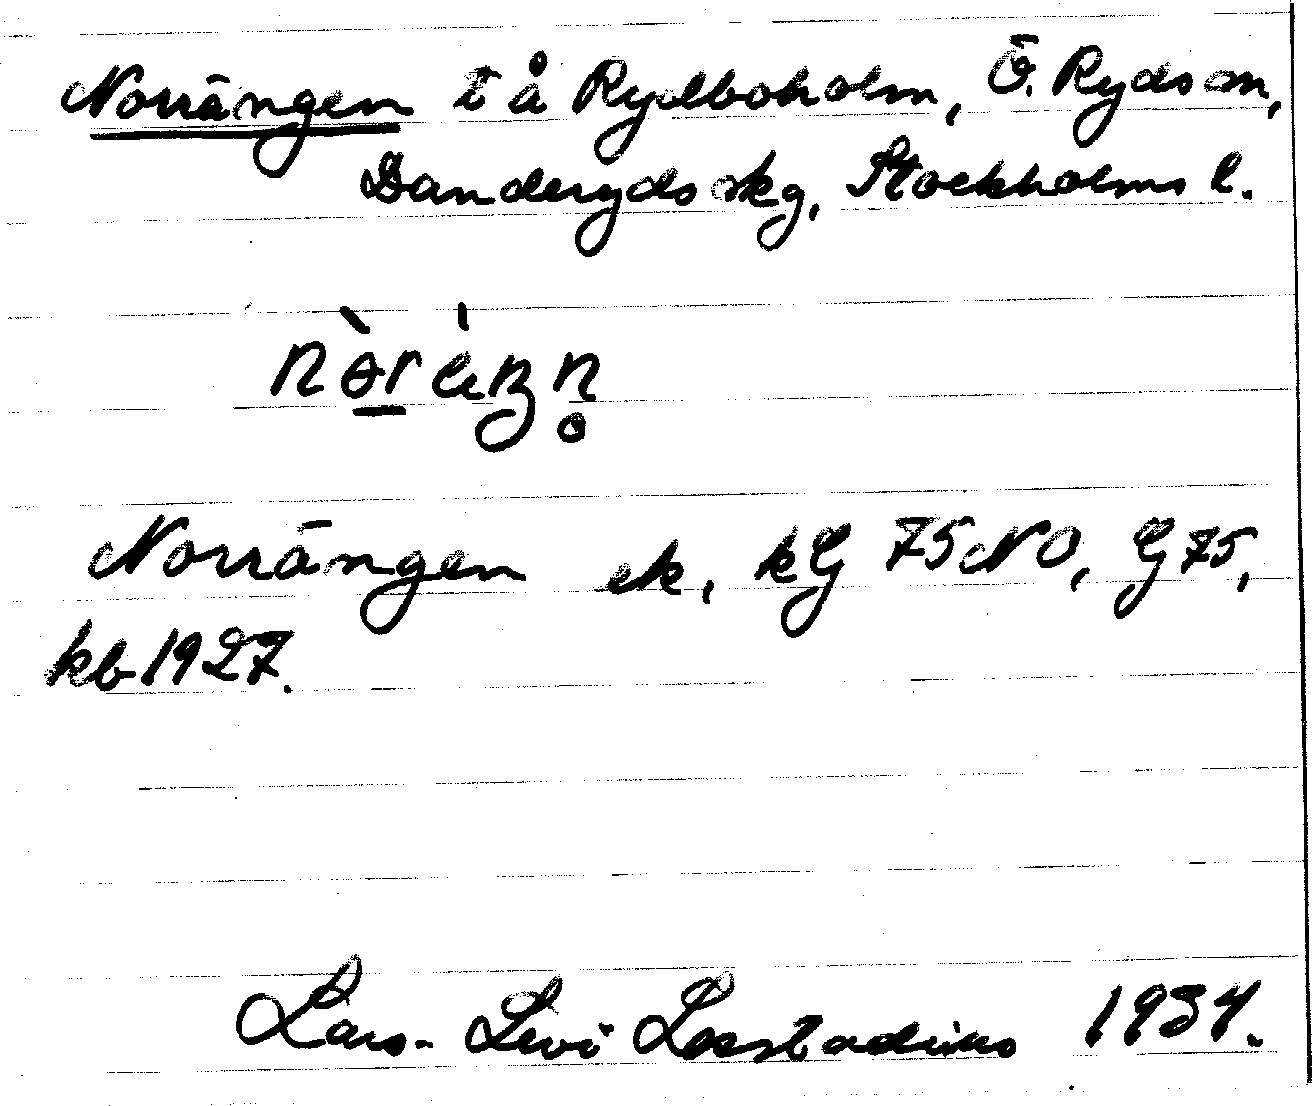 Norrängen t å Rydboholm, Ö. Ryds sn,
Danderyds skg, Stockholms l.
Norrängen ek, kG 75 NO, G 75,
kb 1927.
Lars-Levi Læstadius 1934.